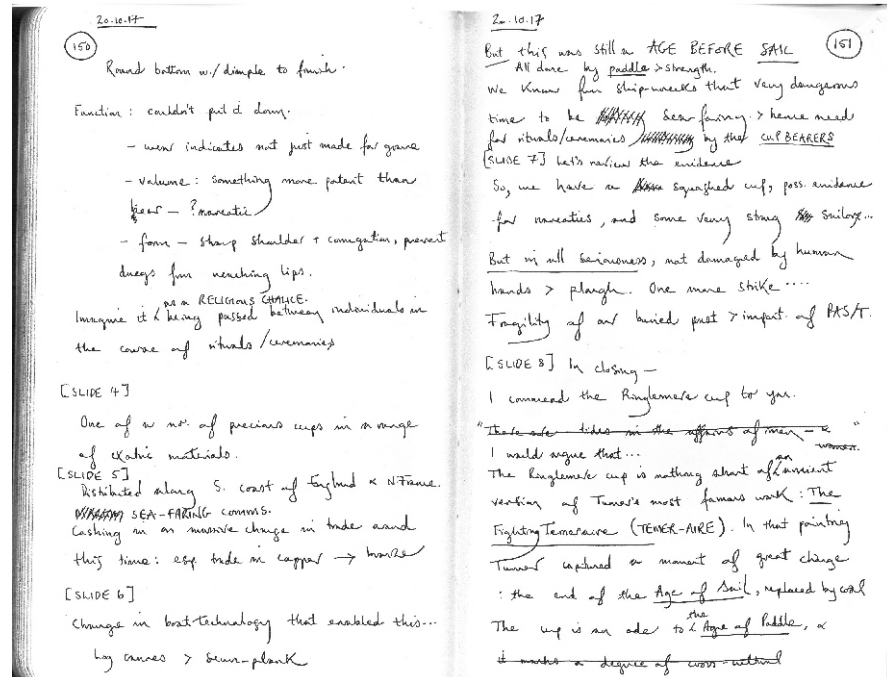 20.10.17
150
Round bottom w./ dimple to finish.
Function: couldn't put it down.
- wear indicates not just made for grave
- volume: something more potent than
beer — ? narcotic
- form - sharp shoulder + corrugation, prevent
dregs from reaching lips.
as a RELIGIOUS CHALICE.
Imagine it being passed between individuals in
the course of rituals/ceremonies
[SLIDE 4]
One of a no. of precious cups in a range
of exotic materials.
[SLIDE 5]
Distributed along S. coast of England & N France.
SEA-FARING comms.
Cashing in on massive change in trade around
this time: esp. trade in copper → bronze
[SLIDE 6]
Change in boat-technology that enabled this...
Log canoes > sewn-plank
20.10.17
151
But this was still an AGE BEFORE SAIL
All done by paddle > strength.
We know from ship-wrecks that very dangerous
time to be sea-faring > hence need
for rituals/ceremonies by the CUP BEARERS
[SLIDE 7] Let's review the evidence
So, we have a squashed cup, poss. evidence
for narcotics, and some very strong sailors...
But in all seriousness, not damaged by human
hands > plough. One more strike ....
Fragility of our buried past > import. of PAS/T.
[SLIDE 8] In closing —
I commend the Ringlemere cup to you.
"There are tides in the affairs of men — & women."
I would argue that...
The Ringlemere cup is nothing short of an ancient
version of Turner's most famous work: The
Fighting Temeraire (TEMER-AIRE). In that painting
Turner captured a moment of great change
: the end of the Age of Sail, replaced by coal
The cup is an ode to the Age of Paddle, &
it marks a degree of cross-cultural